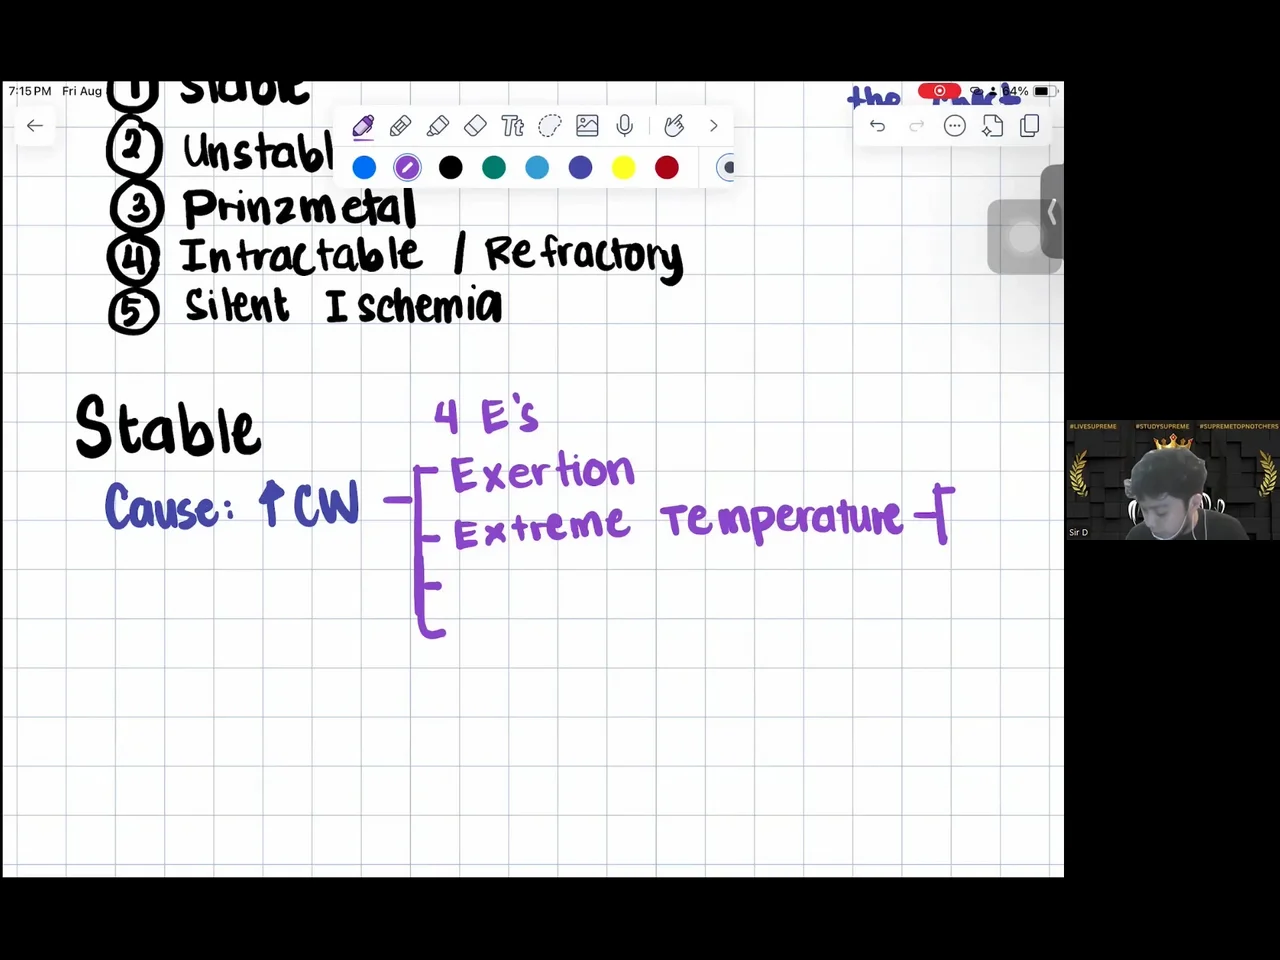 7:15 PM Fri Aug
64%
the
① Stable
② Unstabl
Tt
③ Prinzmetal
④ Intractable / Refractory
⑤ Silent Ischemia
Stable
4 E's
Cause: ↑ CW
Exertion
Extreme Temperature
#LIVESUPREME #STUDYSUPREME #SUPREMETOPNOTCHERS
Sir D